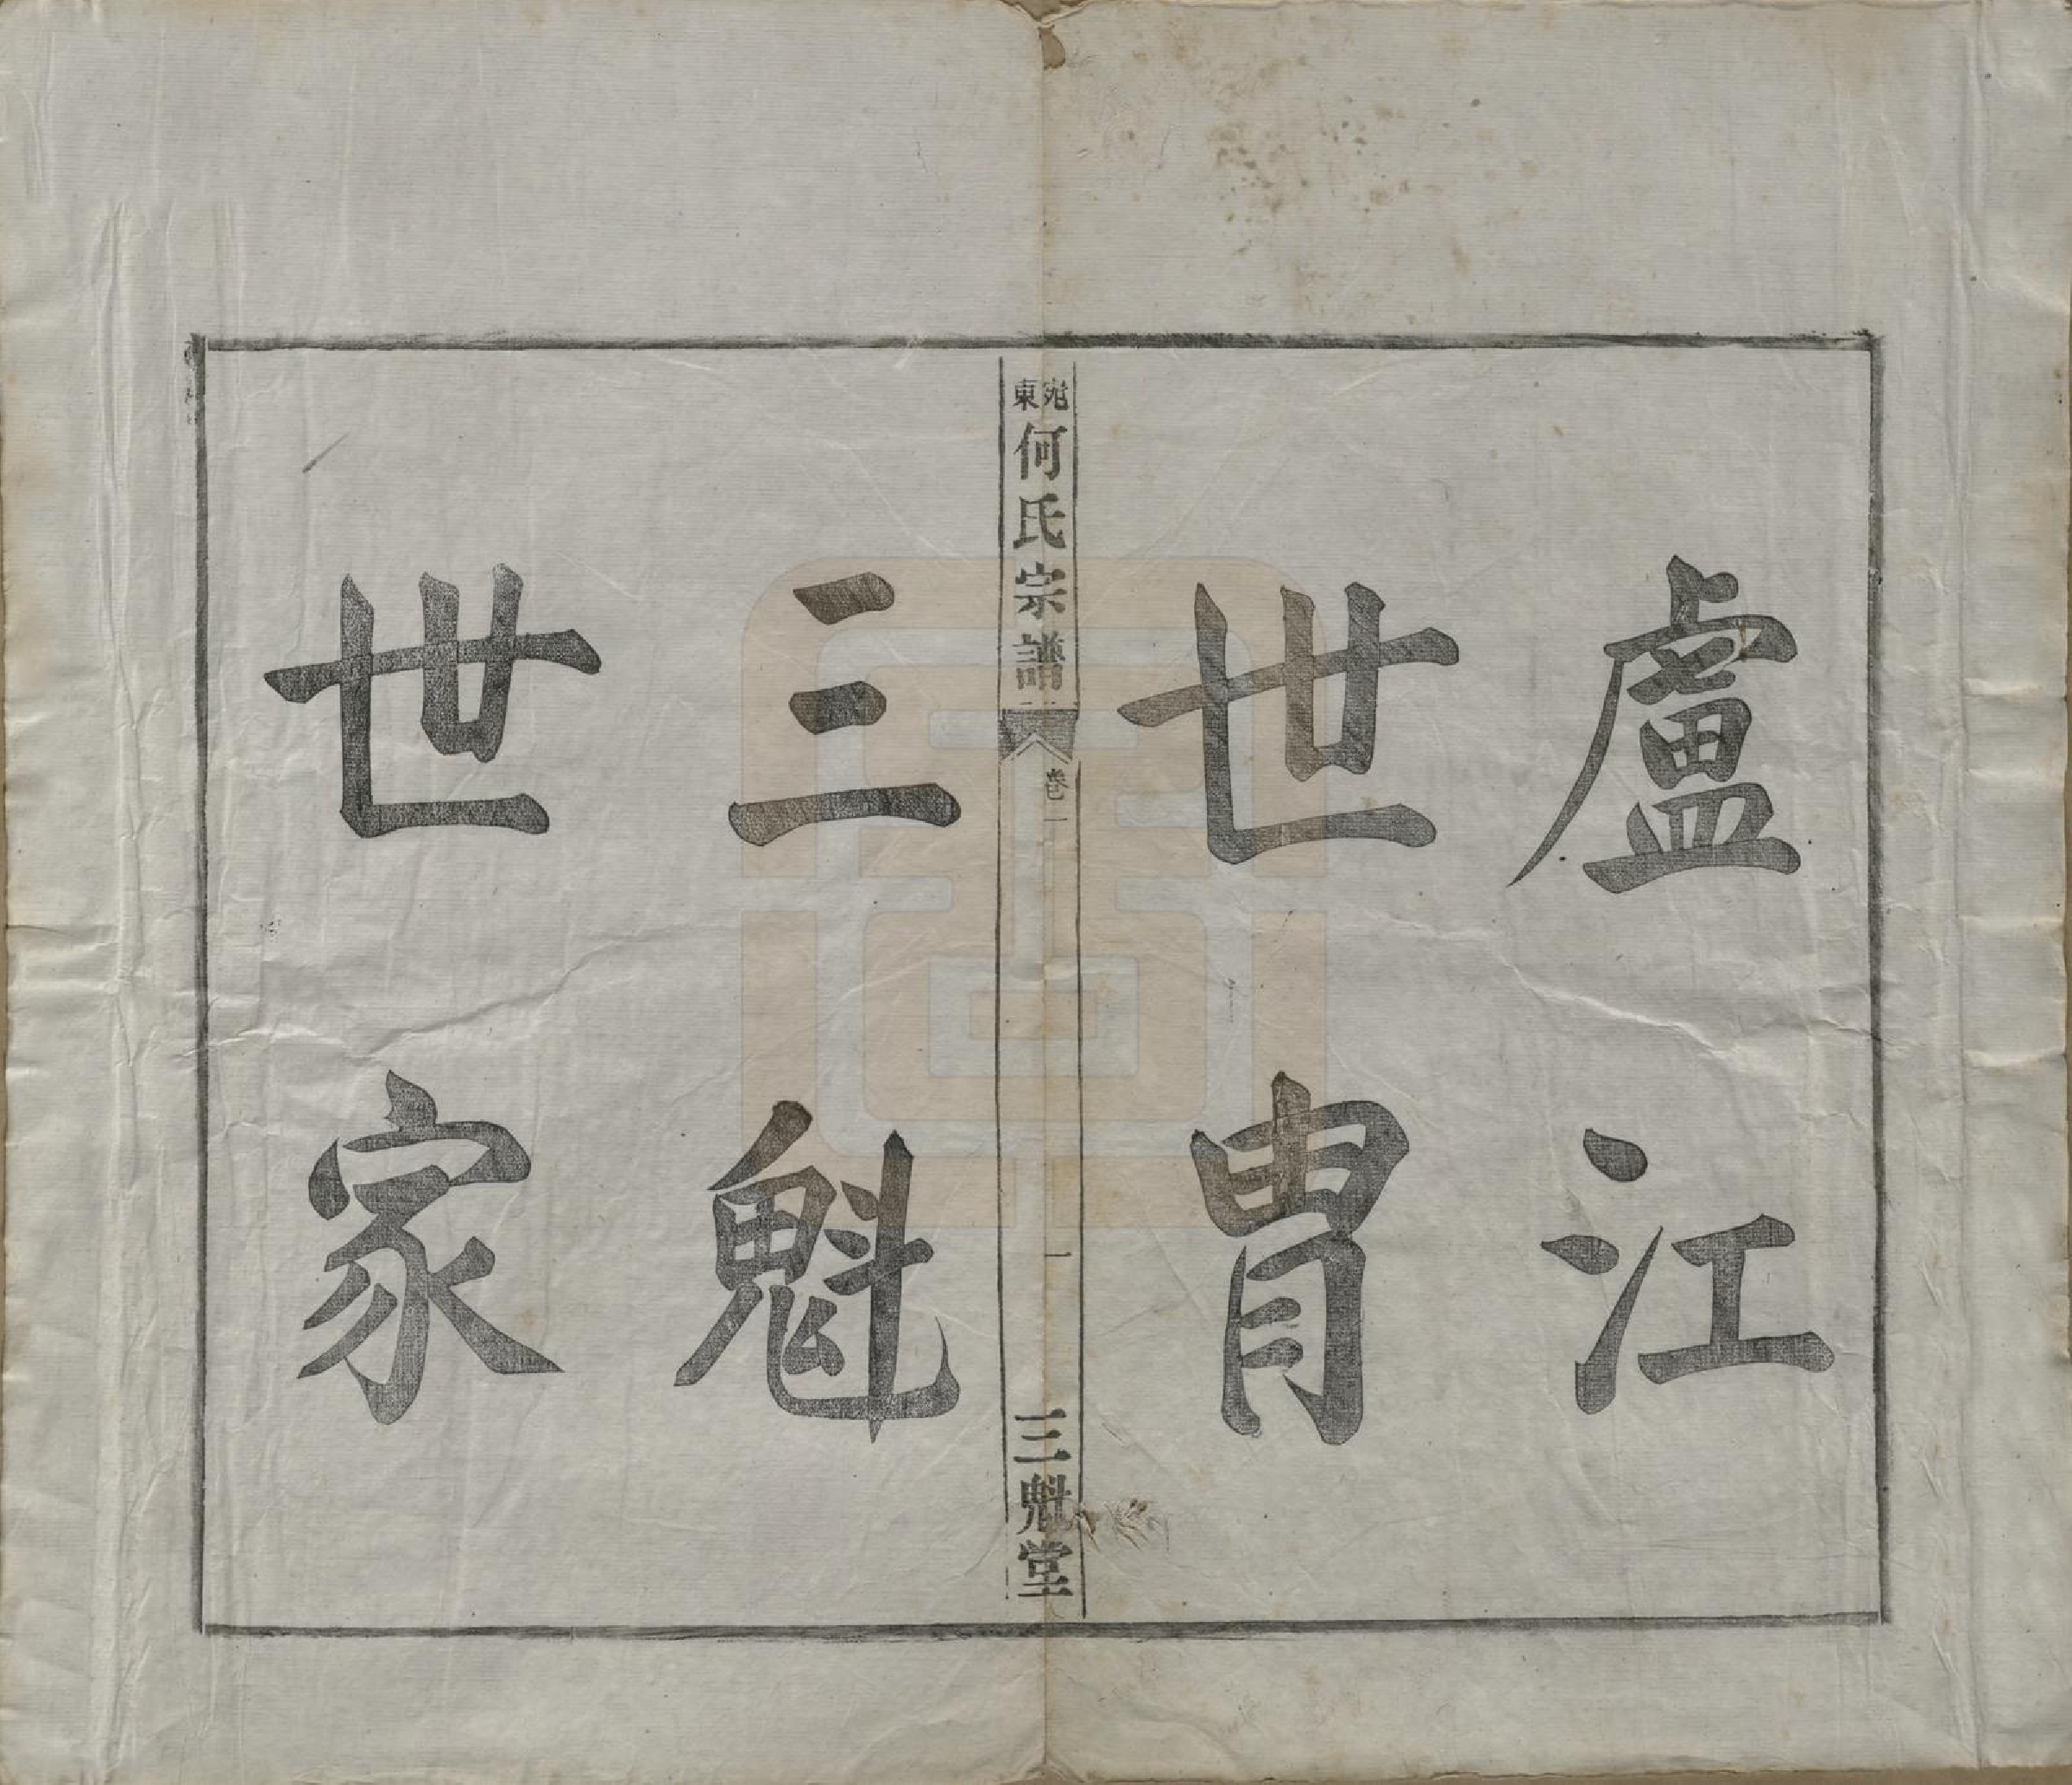 盧江
世胄
宛東何氏宗譜
卷一
一
三魁堂
三魁
世家